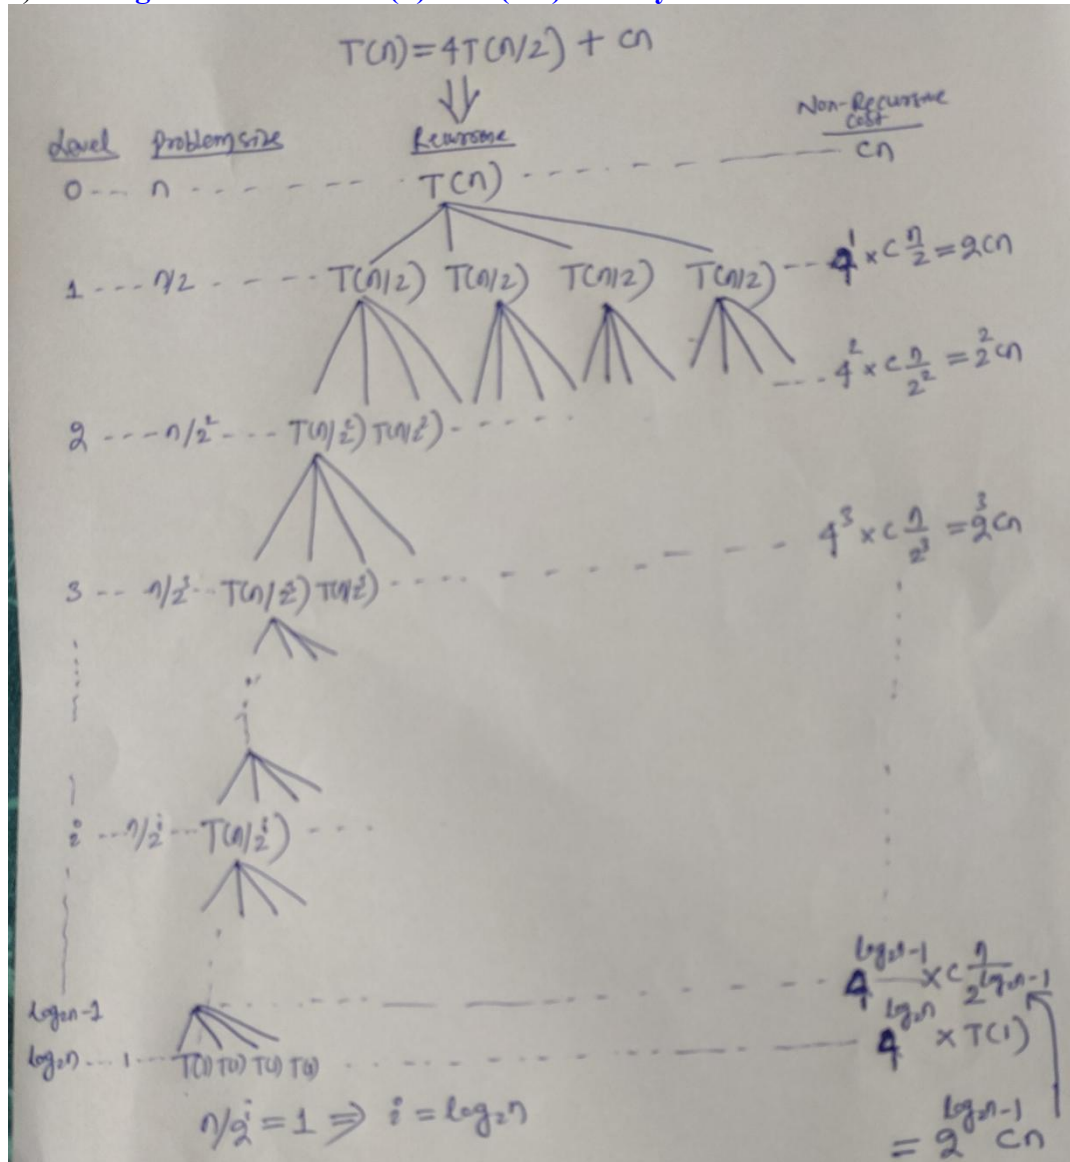 T(n)=4T(n/2) + cn
⇓
Level Problem size Recursive Non-Recursive cost
0 --- n - - - - - - T(n) - - - - - - cn
1 --- n/2 - - - - T(n/2) T(n/2) T(n/2) T(n/2) --- 4^1 × c n/2 = 2cn
---- 4^2 × c n/2^2 = 2^2 cn
2 ---- n/2^2 --- T(n/2^2) T(n/2^2) - - - - -
3 -- n/2^3 -- T(n/2^3) T(n/2^3) - - - - - - 4^3 × c n/2^3 = 2^3 cn
i --- n/2^i --- T(n/2^i) - - - -
log₂n-1 - - - - - - 4^(log₂n-1) × c n/2^(log₂n-1)
log₂n --- 1 --- T(1) T(1) T(1) T(1) - - - - - - 4^(log₂n) × T(1)
n/2^i = 1 ⇒ i = log₂n
= 2^(log₂n-1) cn